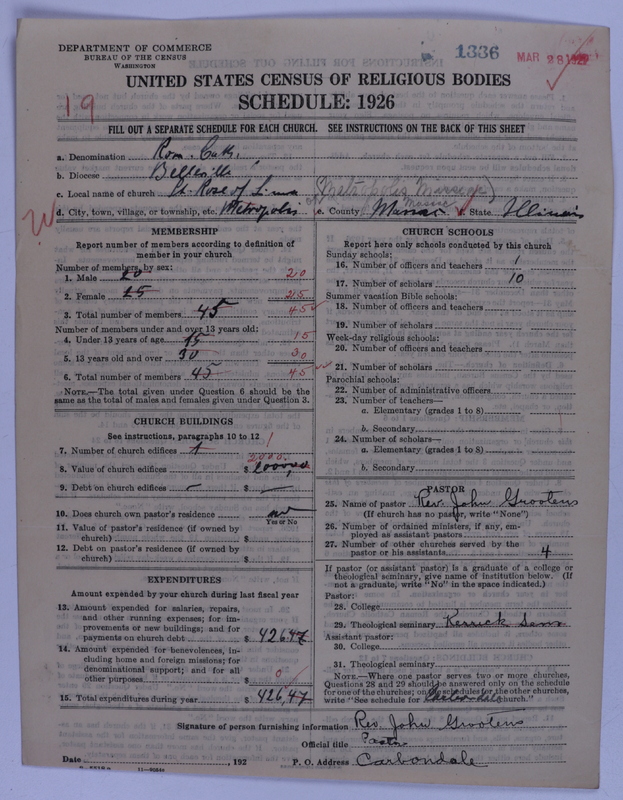 DEPARTMENT OF COMMERCE
BUREAU OF THE CENSUS
WASHINGTON
1336
MAR 28 1927
UNITED STATES CENSUS OF RELIGIOUS BODIES
SCHEDULE: 1926
19
FILL OUT A SEPARATE SCHEDULE FOR EACH CHURCH. SEE INSTRUCTIONS ON THE BACK OF THIS SHEET
a. Denomination Rom. Cath.
b. Diocese Belleville
c. Local name of church St Rose of Lima (Metropolis, Massac)
d. City, town, village, or township, etc. Metropolis e. County Massac f. State Illinois
MEMBERSHIP
Report number of members according to definition of
member in your church
Number of members, by sex:
1. Male 20 20
2. Female 25 25
3. Total number of members 45 45
Number of members under and over 13 years old:
4. Under 13 years of age 15 15
5. 13 years old and over 30 30
6. Total number of members 45 45
NOTE.—The total given under Question 6 should be the
same as the total of males and females given under Question 3.
CHURCH BUILDINGS
See instructions, paragraphs 10 to 12
7. Number of church edifices 1 1
2000
8. Value of church edifices $
9. Debt on church edifices – $ –
10. Does church own pastor's residence no
Yes or No
11. Value of pastor's residence (if owned by
church) $
12. Debt on pastor's residence (if owned by
church) $
EXPENDITURES
Amount expended by your church during last fiscal year
13. Amount expended for salaries, repairs,
and other running expenses; for im-
provements or new buildings; and for
payments on church debt $ 426.47
14. Amount expended for benevolences, in-
cluding home and foreign missions; for
denominational support; and for all
other purposes $ 0
15. Total expenditures during year $ 426.47
CHURCH SCHOOLS
Report here only schools conducted by this church
Sunday schools:
16. Number of officers and teachers 1
17. Number of scholars 10
Summer vacation Bible schools:
18. Number of officers and teachers
19. Number of scholars
Week-day religious schools:
20. Number of officers and teachers
21. Number of scholars
Parochial schools:
22. Number of administrative officers
23. Number of teachers—
a. Elementary (grades 1 to 8)
b. Secondary
24. Number of scholars—
a. Elementary (grades 1 to 8)
b. Secondary
PASTOR
25. Name of pastor Rev. John Grootens
(If church has no pastor, write "None")
26. Number of ordained ministers, if any, em-
ployed as assistant pastors
27. Number of other churches served by the
pastor or his assistants 4
If pastor (or assistant pastor) is a graduate of a college or
theological seminary, give name of institution below. (If
not a graduate, write "No" in the space indicated.)
Pastor:
28. College
29. Theological seminary Kenrick Sem
Assistant pastor:
30. College
31. Theological seminary
NOTE.—Where one pastor serves two or more churches,
Questions 28 and 29 should be answered only on the schedule
for one of the churches; on the schedules for the other churches,
write "See schedule for church."
Signature of person furnishing information Rev. John Grootens
Official title Pastor
Date , 192 P. O. Address Carbondale